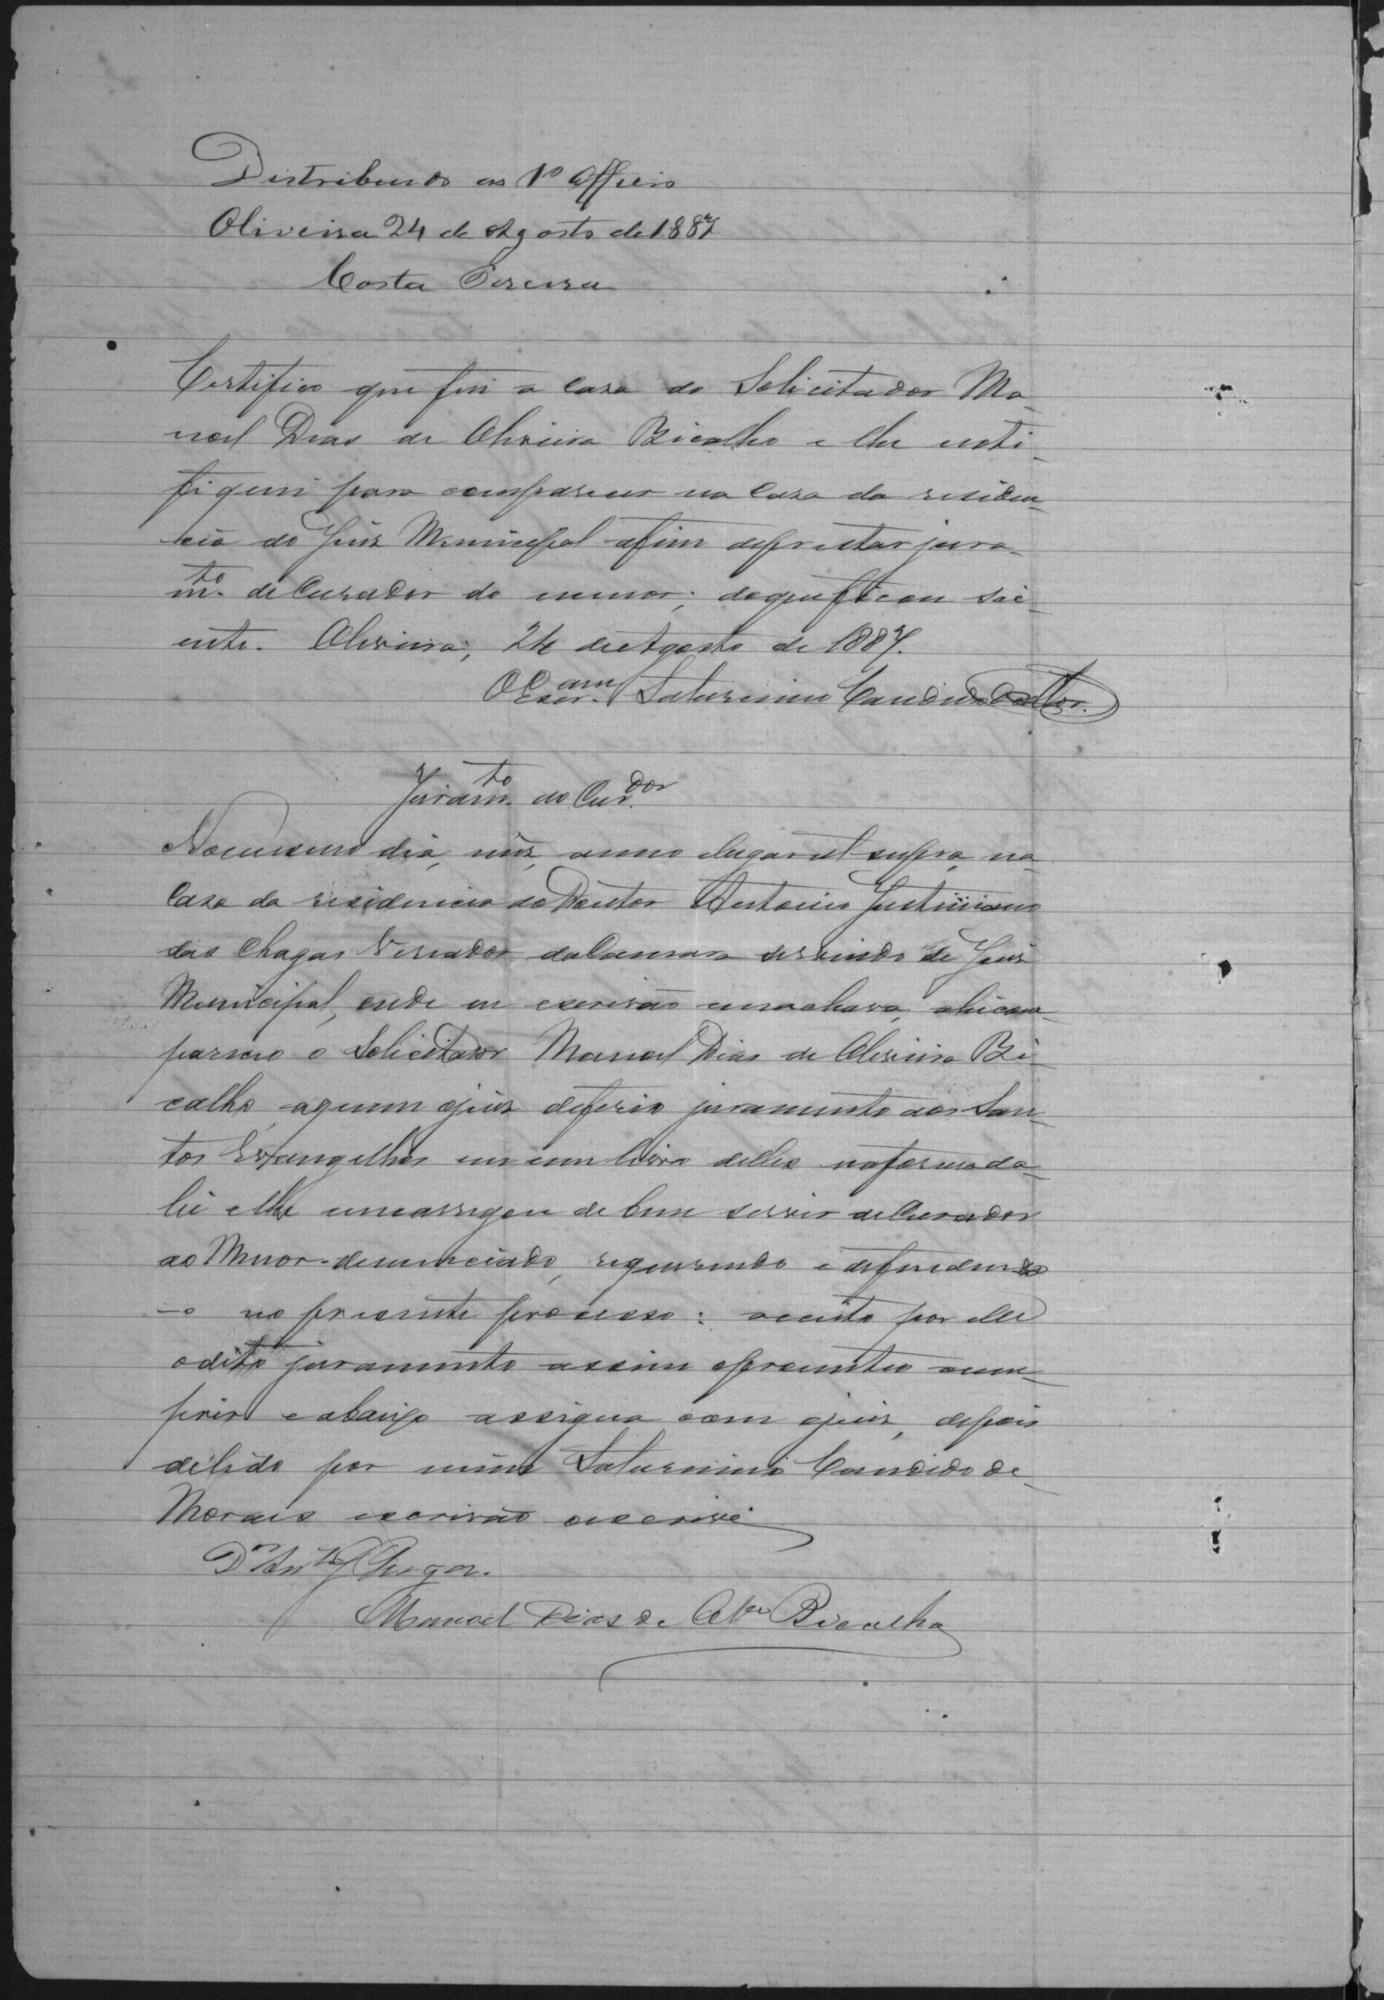 Distribuido ao 1º Officio
Oliveira 24 de Agosto de 1887
Costa Pereira
Certifico que fui a casa do Solicitador Ma-
noel Dias de Oliveira Bicalho e lhe noti-
fiquei para comparecer na casa da residen-
cia do Juiz Municipal afim de prestar jura-
m.to de Curador do menor; do que ficou sci-
ente. Oliveira, 24 de Agosto de 1887.
O Escr.am Saturnino Candido
Juram.to do Cur.dor
No mesmo dia, mez, anno e lugar ut supra, na
casa da residencia do Doutor Antonio Justiniano
das Chagas Vereador da Camara servindo de Juiz
Municipal, onde eu escrivão me achava, ahi com-
pareceo o Solicitador Manoel Dias de Oliveira Bi-
calho, a quem o juiz deferio juramento aos San-
tos Evangelhos em um livro delles na forma da
lei e lhe encarregou de bem servir de Curador
ao Menor denunciado, requerendo e defendendo
-o no presente processo: aceito por elle
o dito juramento assim o prometteo cum-
prir e abaixo assigna com o juiz, depois
de lido por mim Saturnino Candido de
Morais escrivão o escrevi
D.r Ant.o J Chagas.
Manoel Dias de Olv.ra Bicalho